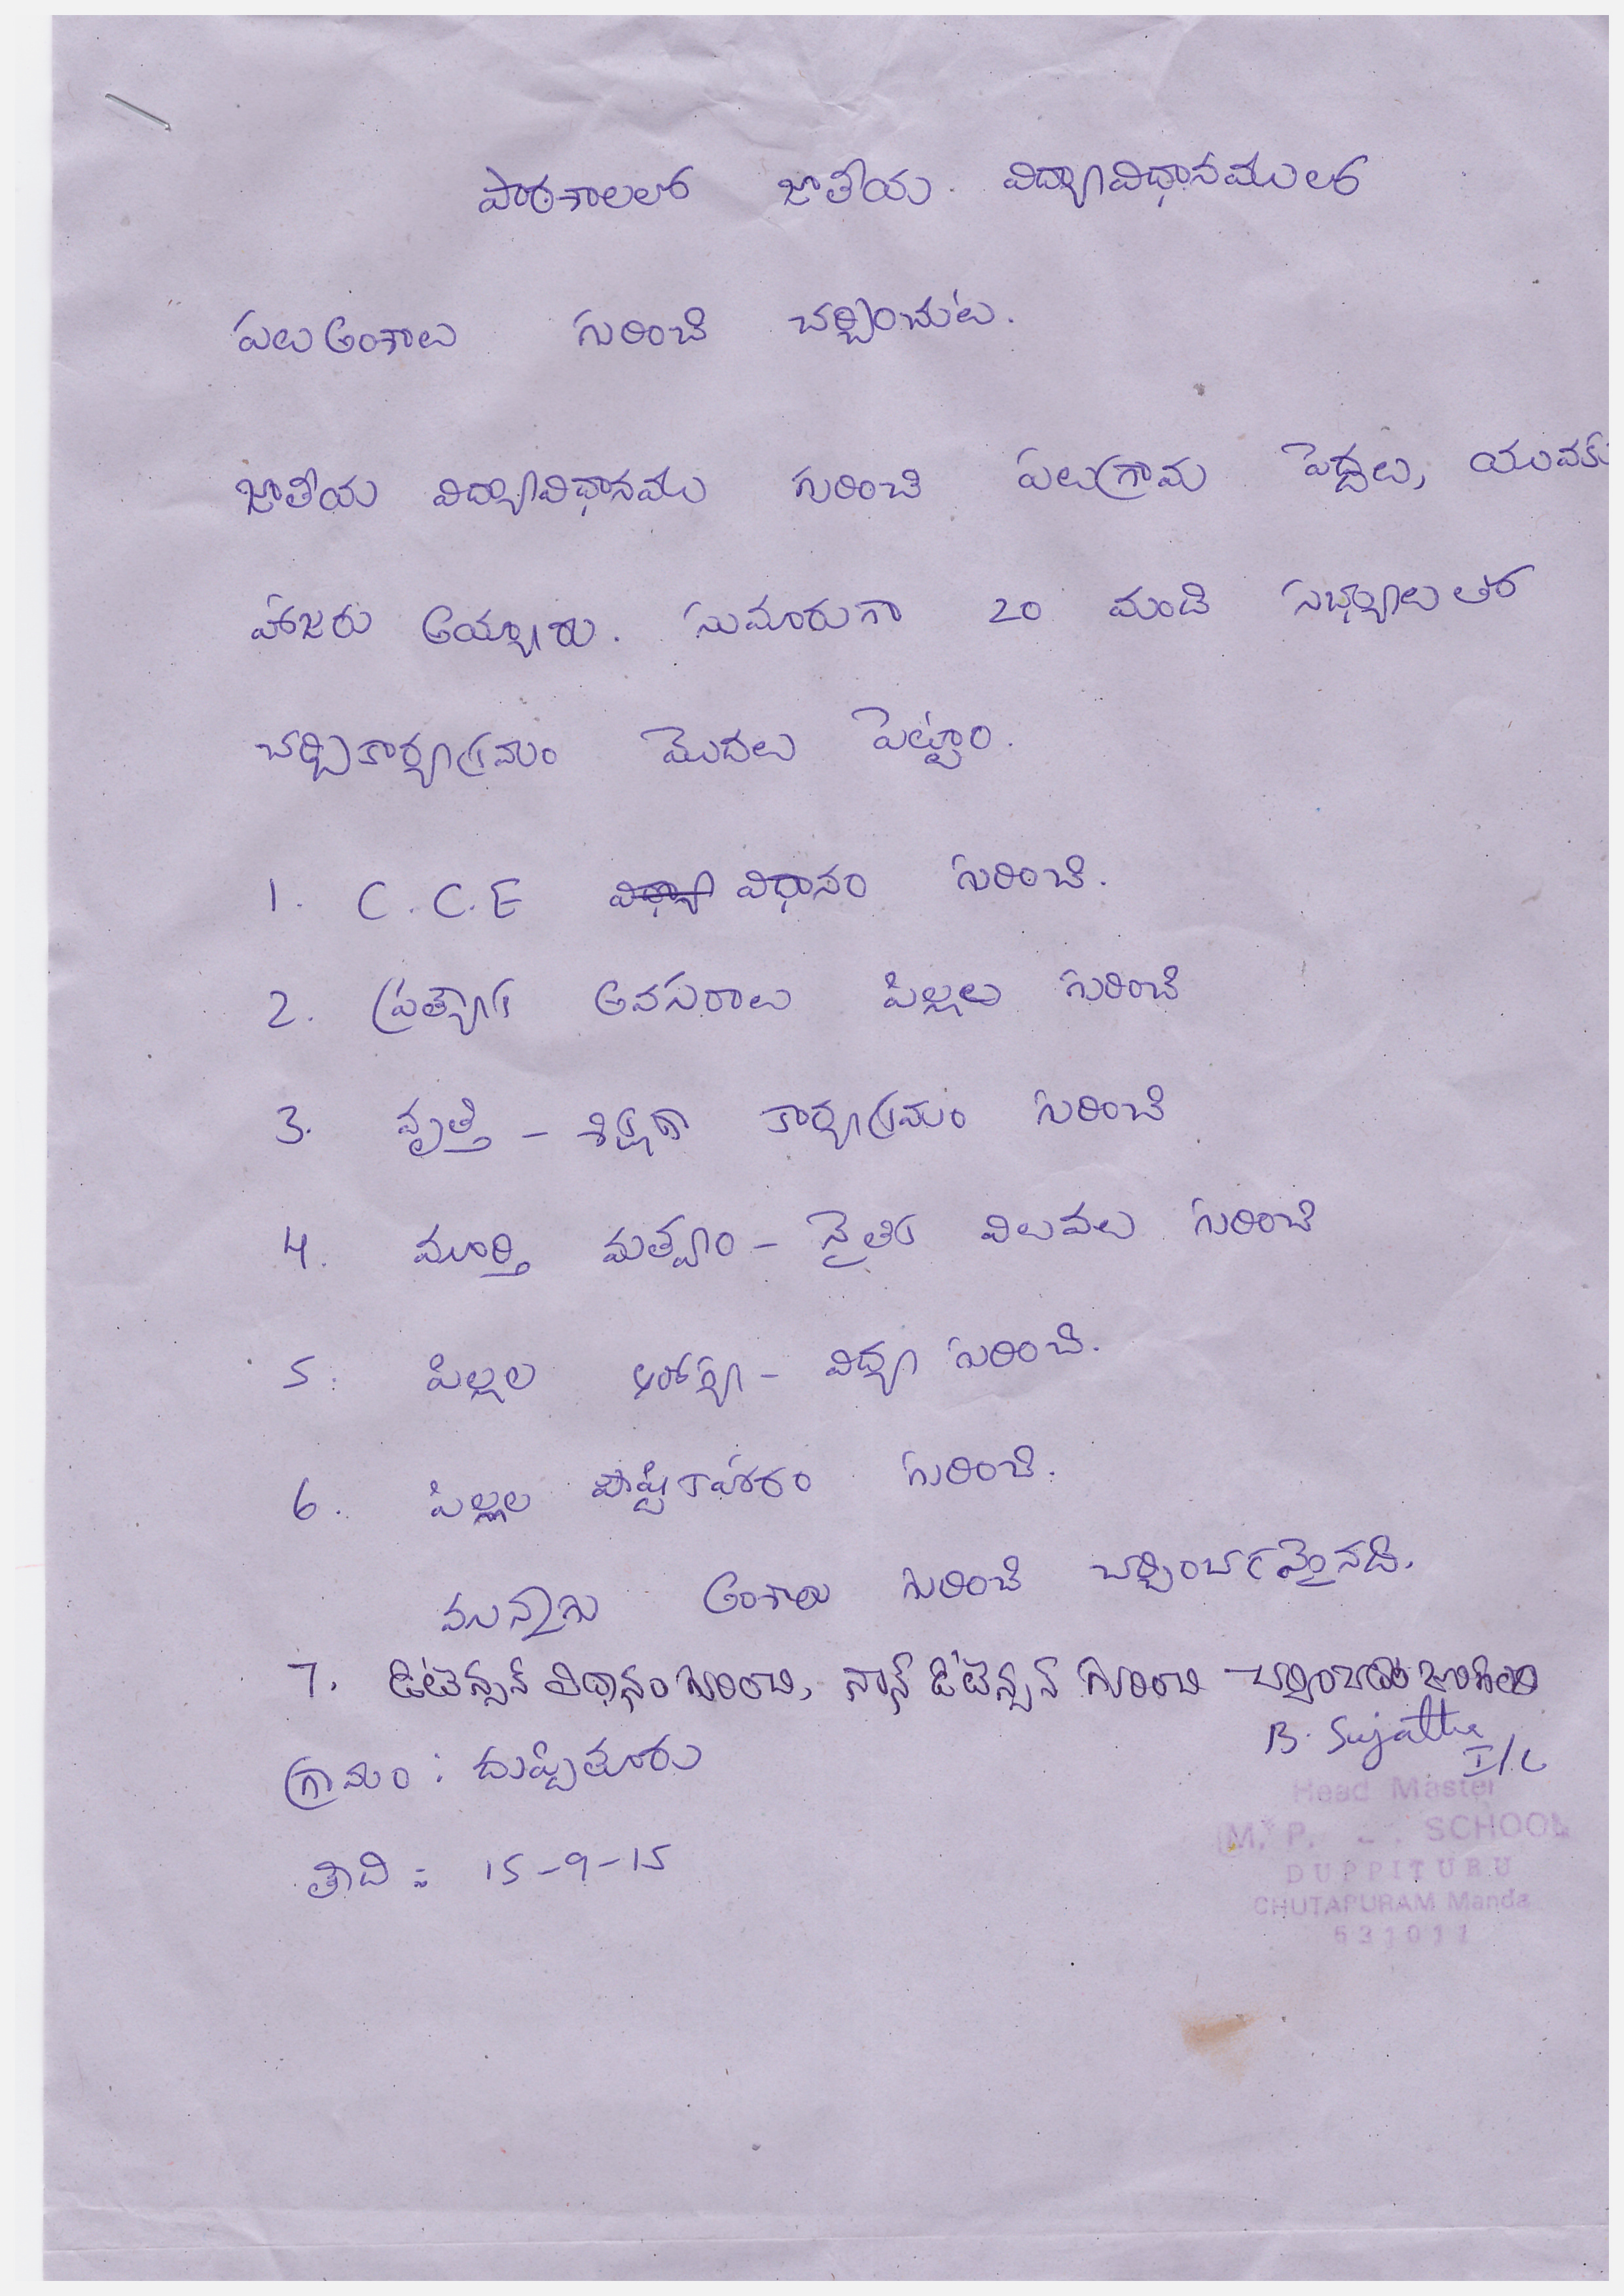 పాఠశాలలో జాతీయ విద్యావిధానములో
పలు అంశాలు గురించి చర్చించుట.
జాతీయ విద్యావిధానము గురించి పలుగ్రామ పెద్దలు, యువకు
హాజరు అయ్యారు. సుమారుగా 20 మంది సభ్యులతో
చర్చికార్యక్రమం మొదలు పెట్టాం.
1. C.C.E విధానం గురించి.
2. ప్రత్యేక అవసరాలు పిల్లలు గురించి
3. వృత్తి - శిక్షణా కార్యక్రమం గురించి
4. మూర్తి మత్వం - నైతిక విలువలు గురించి
5. పిల్లల ఆరోగ్య - విద్య గురించి.
6. పిల్లల పౌష్టికాహారం గురించి.
మున్నగు అంశాలు గురించి చర్చించడమైనది.
7. డిటెన్సన్ విధానం గురించి, నాన్ డిటెన్సన్ గురించి చర్చించడం జరిగింది
B. Sujatha
I/C
గ్రామం : దుప్పితూరు
Head Master
M. P. SCHOOL
DUPPITURU
తాది : 15-9-15
CHUTAPURAM Manda
531011